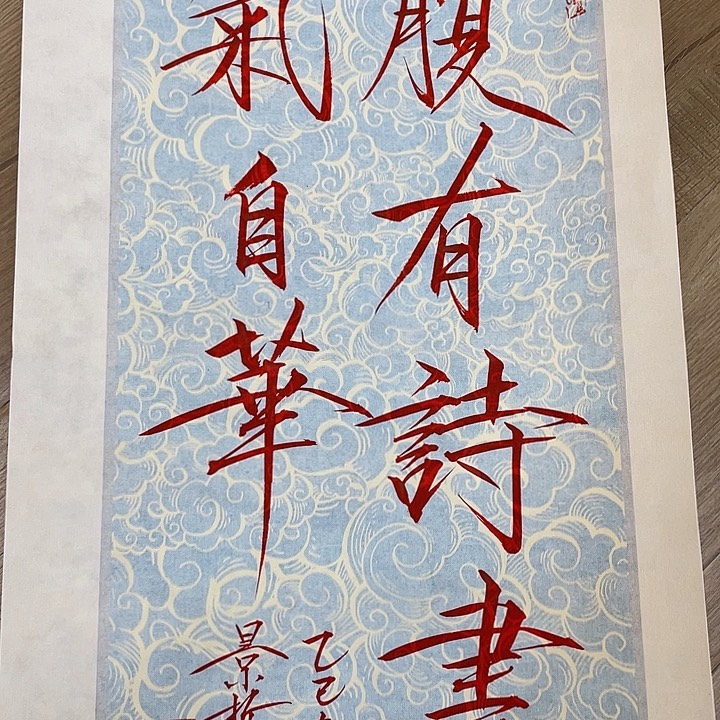 腹有詩書
氣自華
乙巳
景